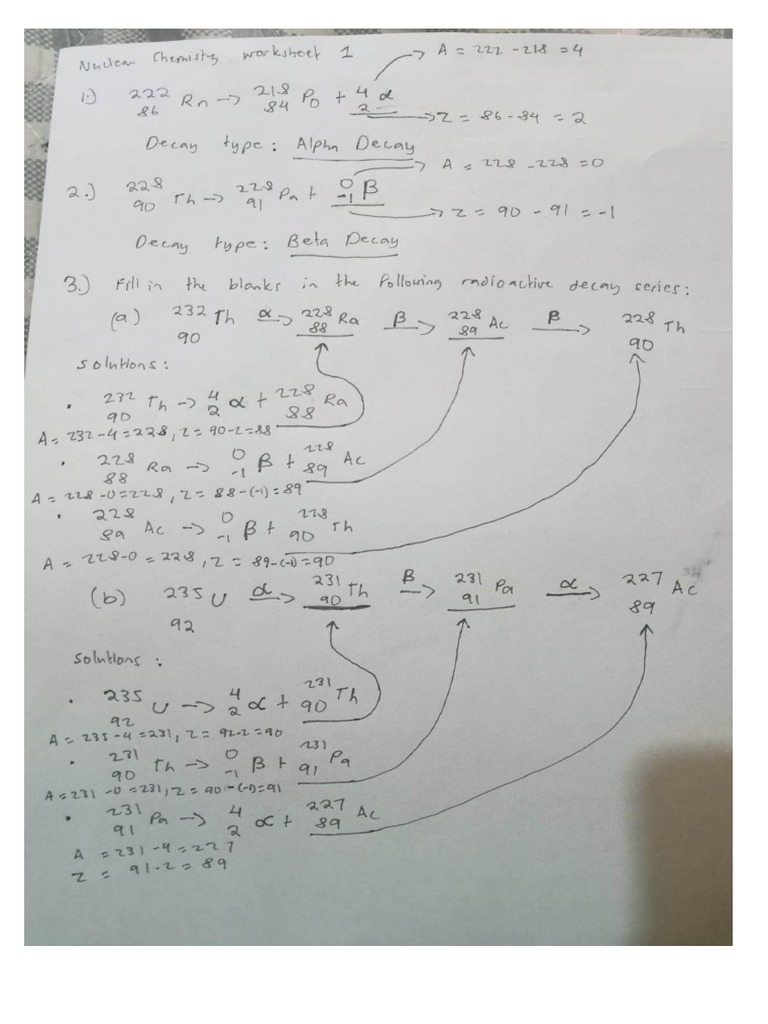 Nuclear Chemistry worksheet 1
A = 222 - 218 = 4
1.) ²²²₈₆ Rn → ²¹⁸₈₄ Po + ⁴₂ α
Z = 86 - 84 = 2
Decay type: Alpha Decay
A = 228 - 228 = 0
2.) ²²⁸₉₀ Th → ²²⁸₉₁ Pa + ⁰₋₁ β
Z = 90 - 91 = -1
Decay type: Beta Decay
3.) Fill in the blanks in the following radioactive decay series:
(a) ²³²₉₀ Th α→ ²²⁸₈₈ Ra β→ ²²⁸₈₉ Ac β→ ²²⁸₉₀ Th
solutions:
• ²³²₉₀ Th → ⁴₂ α + ²²⁸₈₈ Ra
A = 232 - 4 = 228, Z = 90 - 2 = 88
• ²²⁸₈₈ Ra → ⁰₋₁ β + ²²⁸₈₉ Ac
A = 228 - 0 = 228, Z = 88 - (-1) = 89
• ²²⁸₈₉ Ac → ⁰₋₁ β + ²²⁸₉₀ Th
A = 228 - 0 = 228, Z = 89 - (-1) = 90
(b) ²³⁵₉₂ U α→ ²³¹₉₀ Th β→ ²³¹₉₁ Pa α→ ²²⁷₈₉ Ac
solutions:
• ²³⁵₉₂ U → ⁴₂ α + ²³¹₉₀ Th
A = 235 - 4 = 231, Z = 92 - 2 = 90
• ²³¹₉₀ Th → ⁰₋₁ β + ²³¹₉₁ Pa
A = 231 - 0 = 231, Z = 90 - (-1) = 91
• ²³¹₉₁ Pa → ⁴₂ α + ²²⁷₈₉ Ac
A = 231 - 4 = 227
Z = 91 - 2 = 89